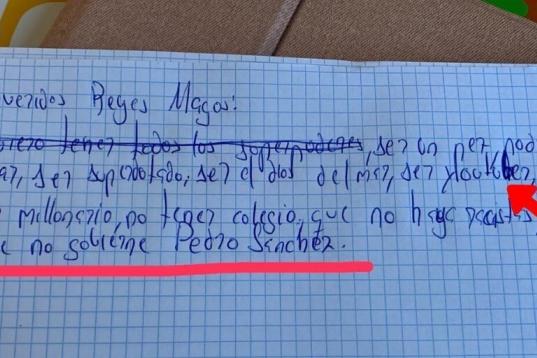 ueridos Reyes Magos:
iero tener todos los superpoderes, ser un pez, pod
ar, ser superdotado, ser el dios del mar, ser youtuber,
millonario, no tener colegio, que no haya racistas
e no gobierne Pedro Sánchez.